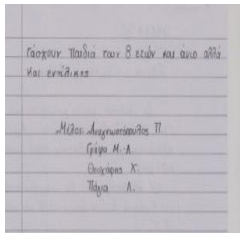 πάσχουν παιδιά των 8 ετών και άνω αλλά
και ενήλικες
Μέλος: Αναγνωστόπουλος Π.
Γρίβα Μ.-Α.
Θεοχάρης Χ.
Πάγια Λ.